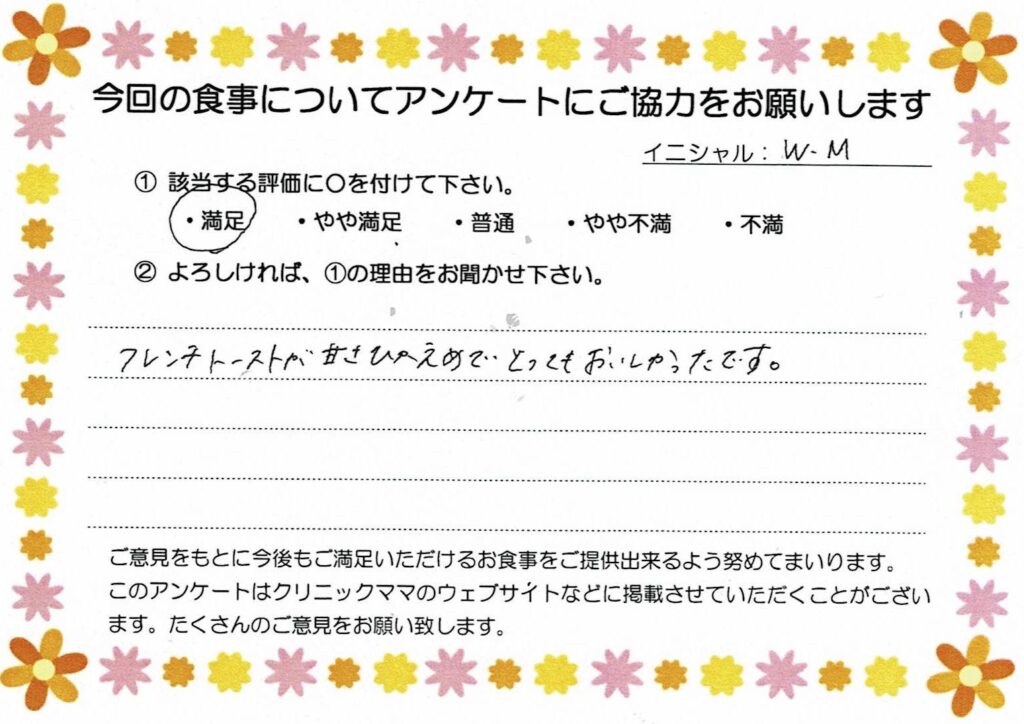 今回の食事についてアンケートにご協力をお願いします
イニシャル： W.M
① 該当する評価に〇を付けて下さい。
・満足 ・やや満足 ・普通 ・やや不満 ・不満
② よろしければ、①の理由をお聞かせ下さい。
フレンチトーストが甘さひかえめでとってもおいしかったです。
ご意見をもとに今後もご満足いただけるお食事をご提供出来るよう努めてまいります。
このアンケートはクリニックママのウェブサイトなどに掲載させていただくことがござい
ます。たくさんのご意見をお願い致します。